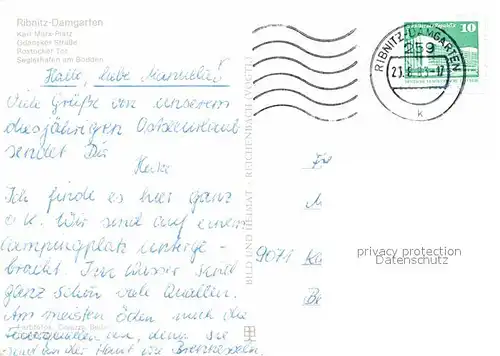 Ribnitz-Damgarten
Karl-Marx-Platz
Gdansker Straße
Rostocker Tor
Seglerhafen am Bodden
Hallo, liebe Manuela!
Viele Grüße von unserem
diesjährigen Ostseeurlaub
sendet Dir
Heike
Ich finde es hier ganz
o.k. Wir sind auf einem
Campingplatz unterge-
bracht. Im Wasser sind
ganz schön viele Quallen.
Am meisten öden mich die
Feuerquallen an, denn sie
sind an der Haut wie Brennesseln
BILD UND HEIMAT REICHENBACH (VOGTL)
RIBNITZ-DAMGARTEN
259
k
10
9071
privacy protection
Datenschutz